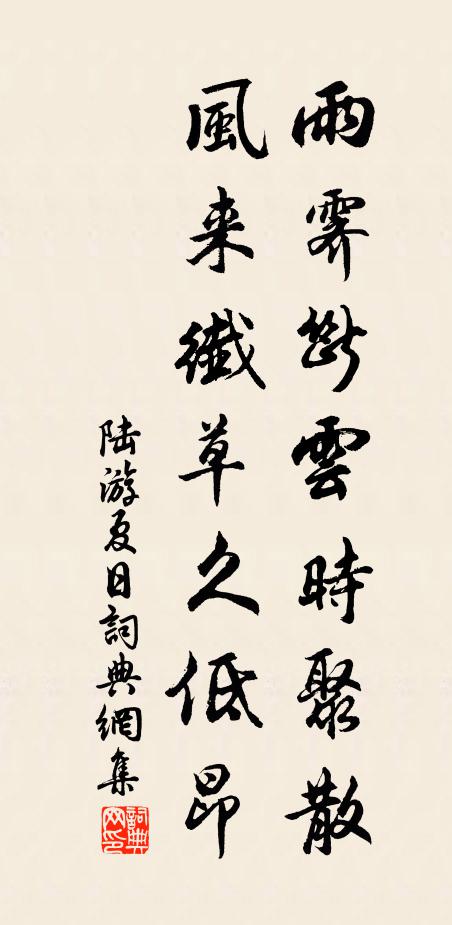 雨霽斷雲時聚散
風来纖草久低昂
陆游夏日詞典網集
詞典网印